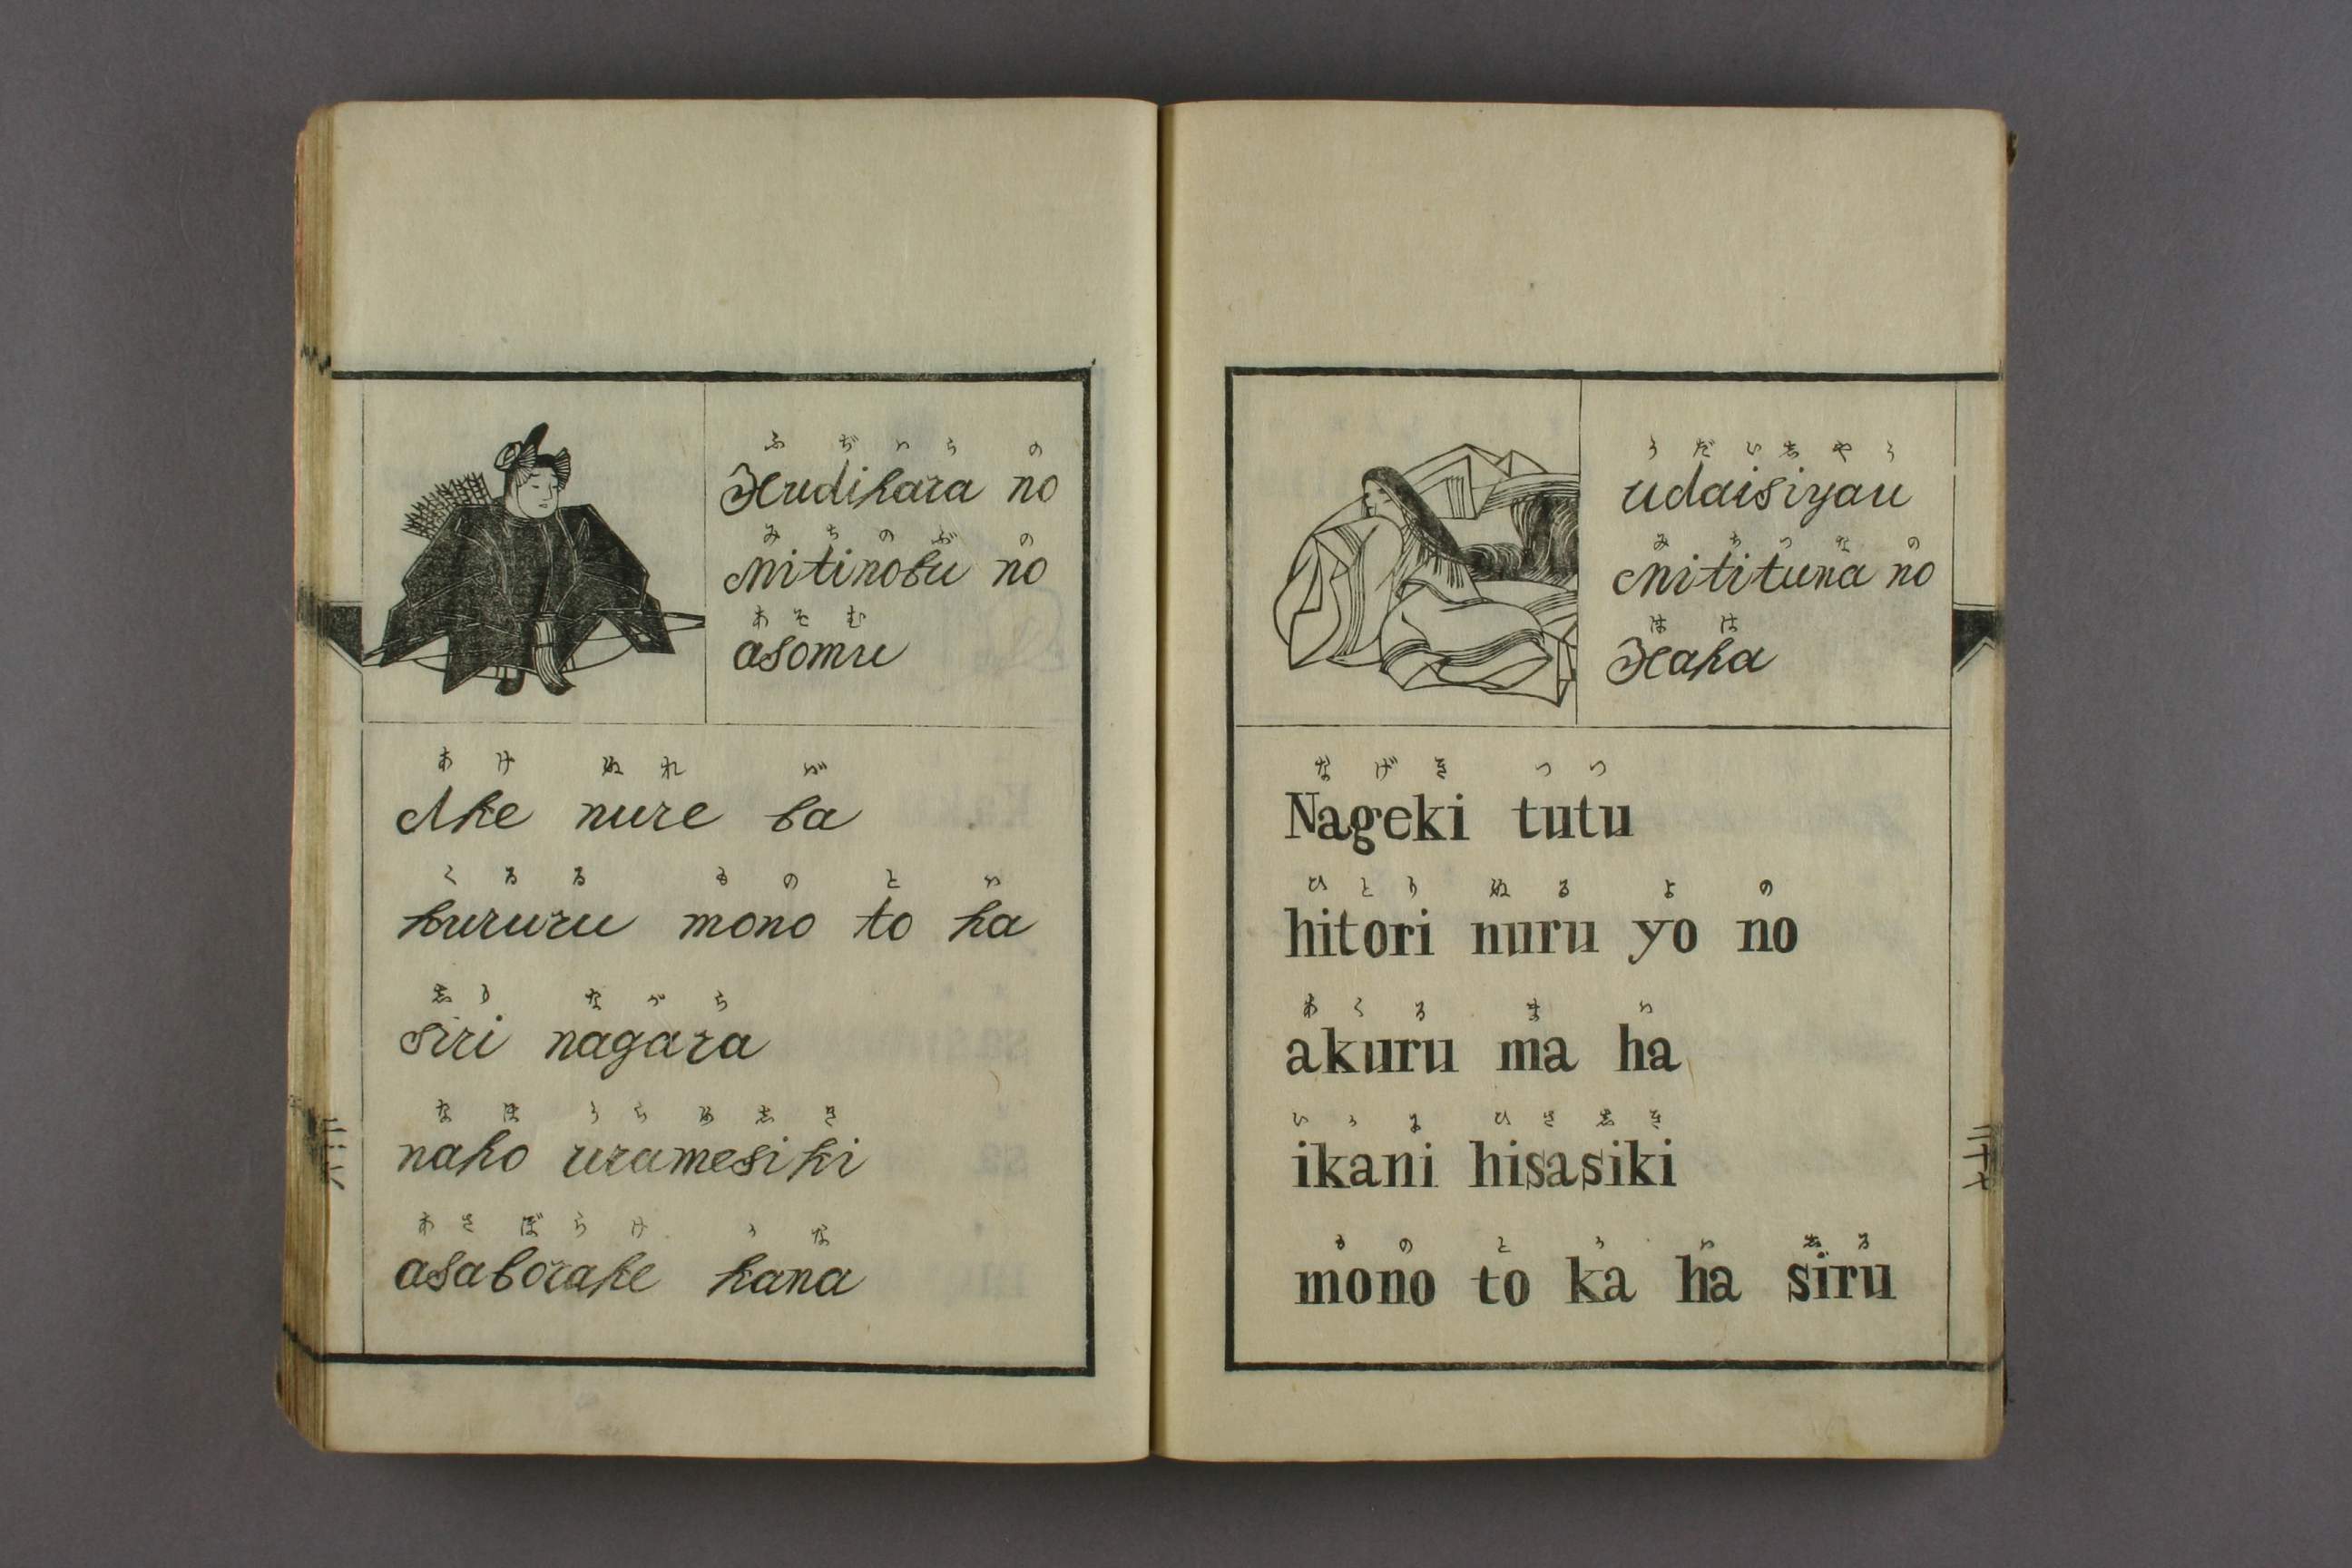 ふぢハらの
Hudihara no
みちのぶの
Mitinobu no
あそむ
asomu
あけぬれバ
Ake nure ba
くるるものとハ
kururu mono to ha
しりながら
siri nagara
なほうらめしき
naho uramesiki
あさぼらけかな
asaborake kana
二十六
うだいしやう
udaisiyau
みちつなの
Mitituna no
はは
Haha
なげきつつ
Nageki tutu
ひとりぬるよの
hitori nuru yo no
あくるまハ
akuru ma ha
いかにひさしき
ikani hisasiki
ものとかハしる
mono to ka ha siru
二十七